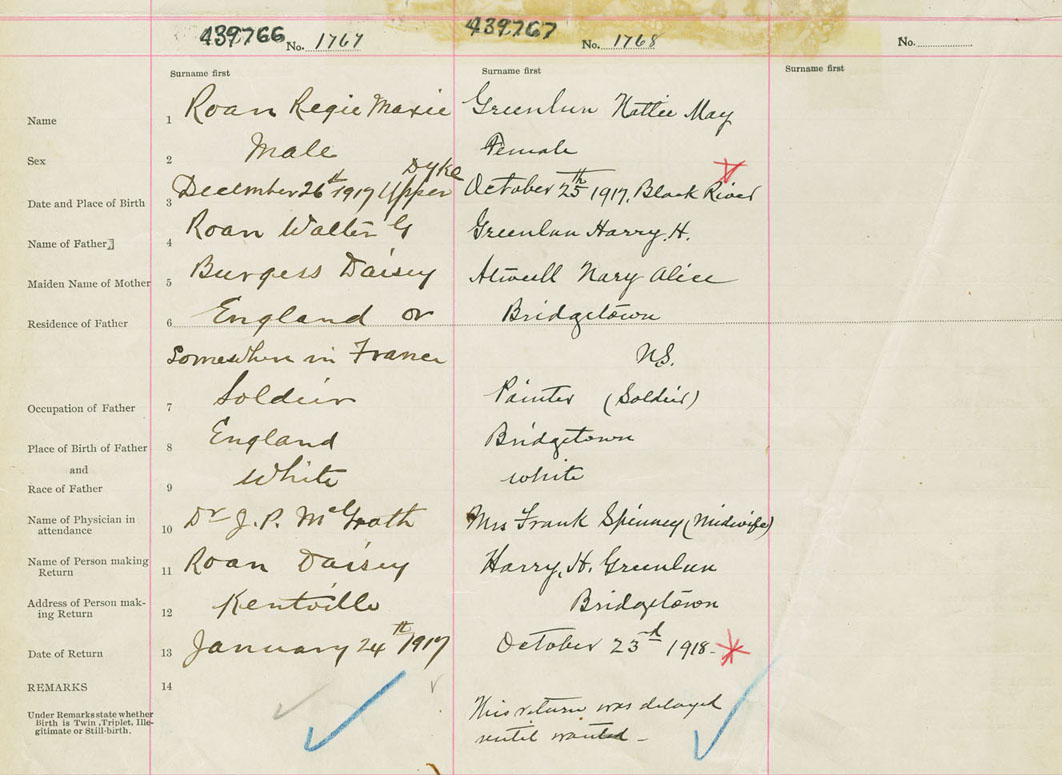 439766 No. 1767 439767 No. 1768 No.
Surname first Surname first Surname first
Name 1 Roan Regie Maxie Greenlun Hattie May
Sex 2 Male Female
Date and Place of Birth 3 December 26th 1917 Upper Dyke October 25th 1917, Black River
Name of Father 4 Roan Walter G Greenlun Harry. H.
Maiden Name of Mother 5 Burgess Daisey Atwell Mary Alice
Residence of Father 6 England or Bridgetown
Somewhere in France N.S.
Occupation of Father 7 Soldier Painter (Soldier)
Place of Birth of Father 8 England Bridgetown
and
Race of Father 9 White white
Name of Physician in attendance 10 Dr J. P. McGrath Mrs Frank Spinney (Midwife)
Name of Person making Return 11 Roan Daisey Harry. H. Greenlun
Address of Person mak-
ing Return 12 Kentville Bridgetown
Date of Return 13 January 24th 1917 October 23d 1918-
REMARKS 14
Under Remarks state whether
Birth is Twin, Triplet, Ille-
gitimate or Still-birth.
This return was delayed
until wanted -